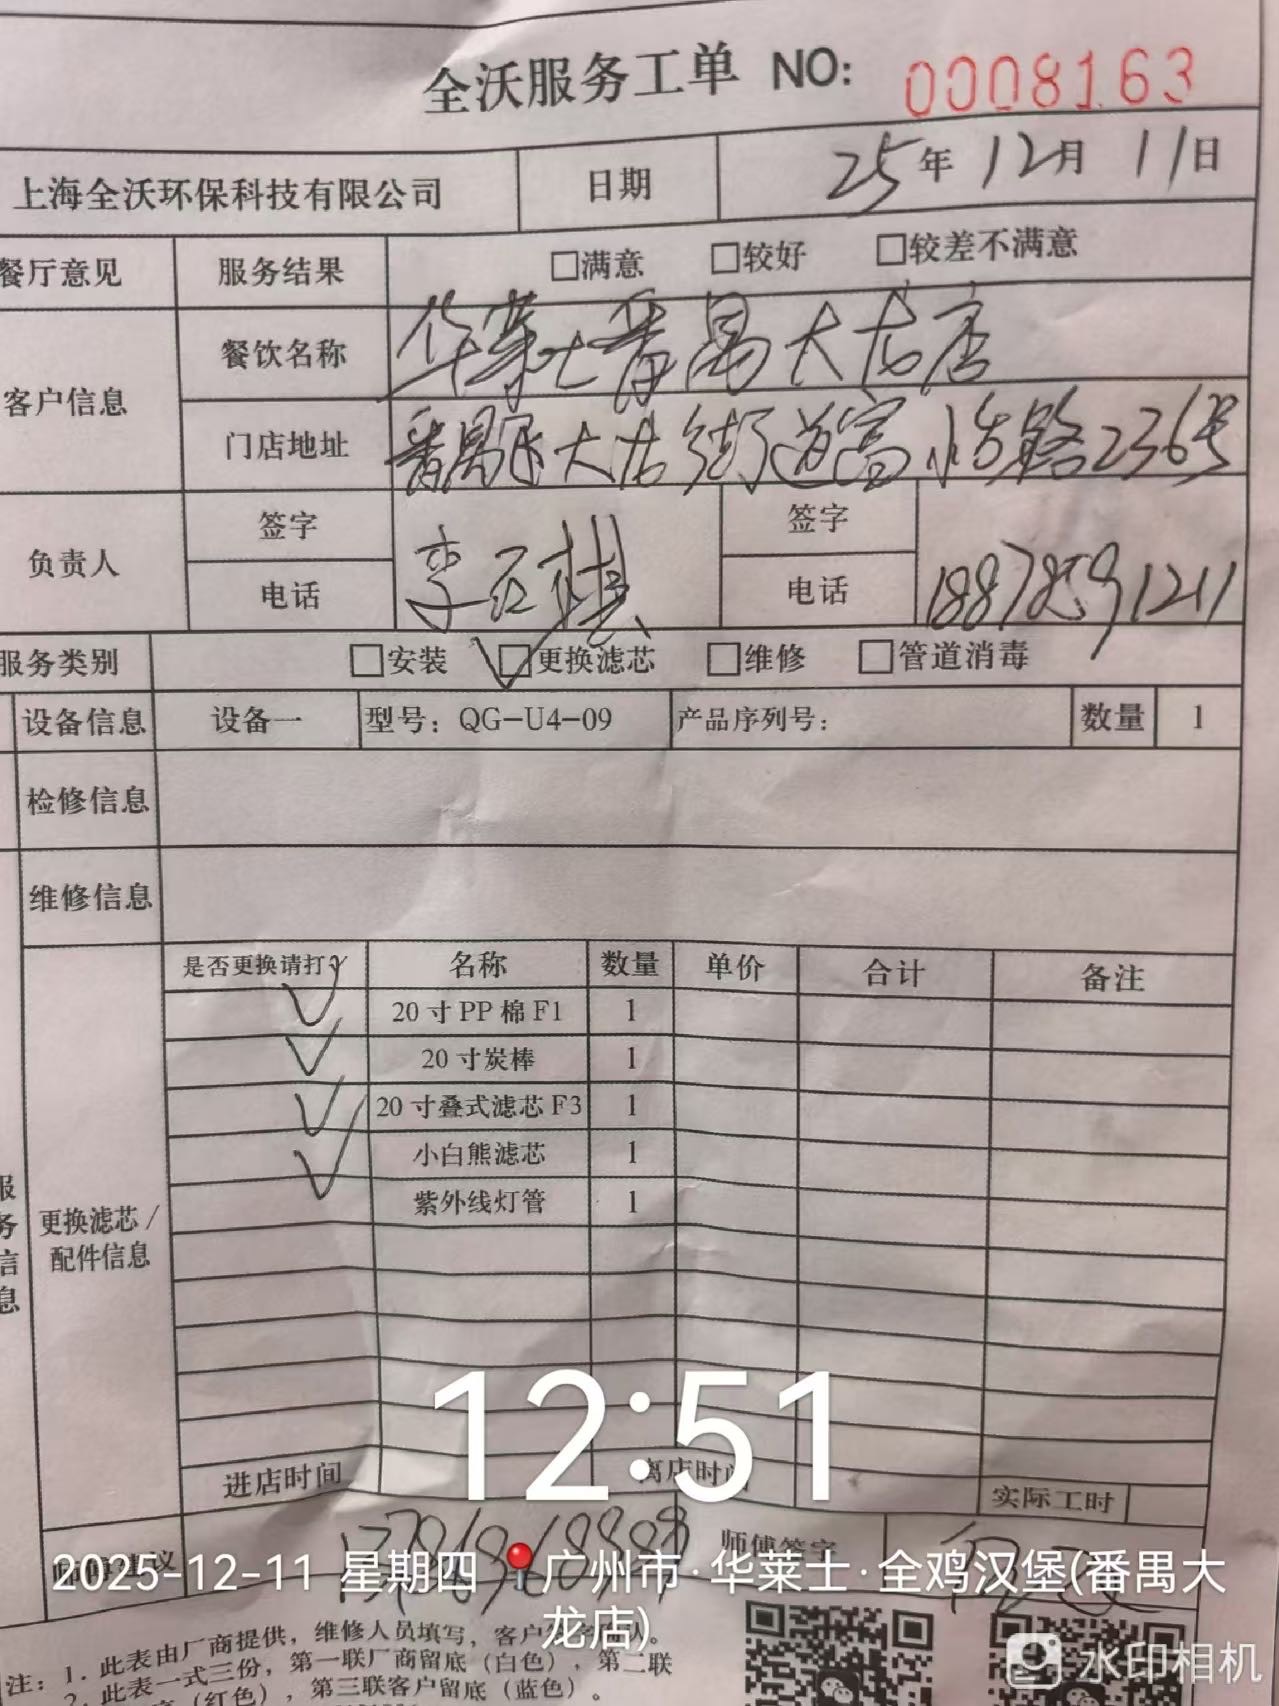 全沃服务工单 NO: 0008163
上海全沃环保科技有限公司 日期 25年12月11日
餐厅意见 服务结果 □满意 □较好 □较差不满意
客户信息 餐饮名称 华莱士番禺大龙店
门店地址 番禺区大龙街道富怡路236号
负责人 签字 签字
电话 电话 18878591211
服务类别 □安装 ☑更换滤芯 □维修 □管道消毒
设备信息 设备一 型号：QG-U4-09 产品序列号： 数量 1
检修信息
维修信息
是否更换请打√ 名称 数量 单价 合计 备注
√ 20寸PP棉F1 1
√ 20寸炭棒 1
√ 20寸叠式滤芯F3 1
√ 小白熊滤芯 1
紫外线灯管 1
服务信息
更换滤芯/
配件信息
12:51
进店时间 离店时间 实际工时
师傅建议 师傅签字
2025-12-11 星期四 广州市·华莱士·全鸡汉堡(番禺大
龙店)
注：1. 此表由厂商提供，维修人员填写，客户
2. 此表一式三份，第一联厂商留底（白色），第二联
（红色），第三联客户留底（蓝色）。
水印相机